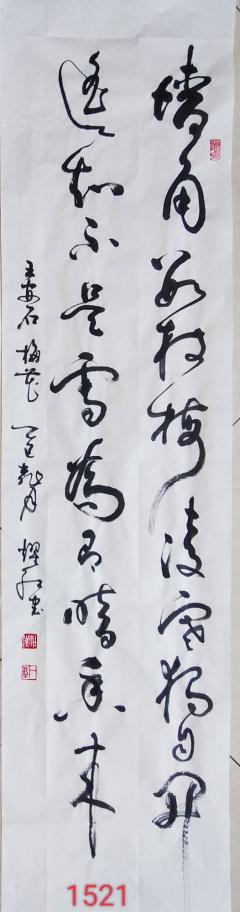 墙角数枝梅凌寒独自开
遥知不是雪为有暗香来
王安石梅花
1521